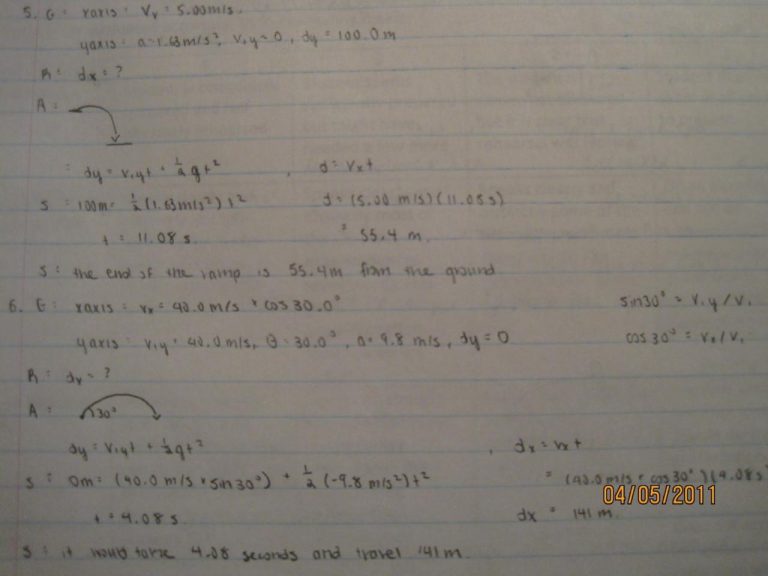 5. G: xaxis: Vx = 5.00m/s.
yaxis: a = 1.63m/s², V₁y = 0, dy = 100.0m
R: dx = ?
A:
dy = V₁yt + ½gt², d = Vxt
S: 100m = ½(1.63m/s²)t² d = (5.00 m/s)(11.08s)
t = 11.08s. = 55.4 m.
S: the end of the ramp is 55.4m from the ground
6. G: xaxis: Vx = 40.0m/s × cos30.0° sin30° = V₁y/V₁
yaxis: V₁y = 40.0m/s, θ = 30.0°, a = 9.8 m/s, dy = 0 cos30° = Vx/V₁
R: dx = ?
A: 30°
dy = V₁yt + ½gt², dx = Vxt
S: 0m = (40.0 m/s × sin30°) + ½(-9.8 m/s²)t² = (40.0m/s × cos30°)(4.08s)
t = 4.08s. dx = 141m.
S: it would take 4.08 seconds and travel 141m.
04/05/2011